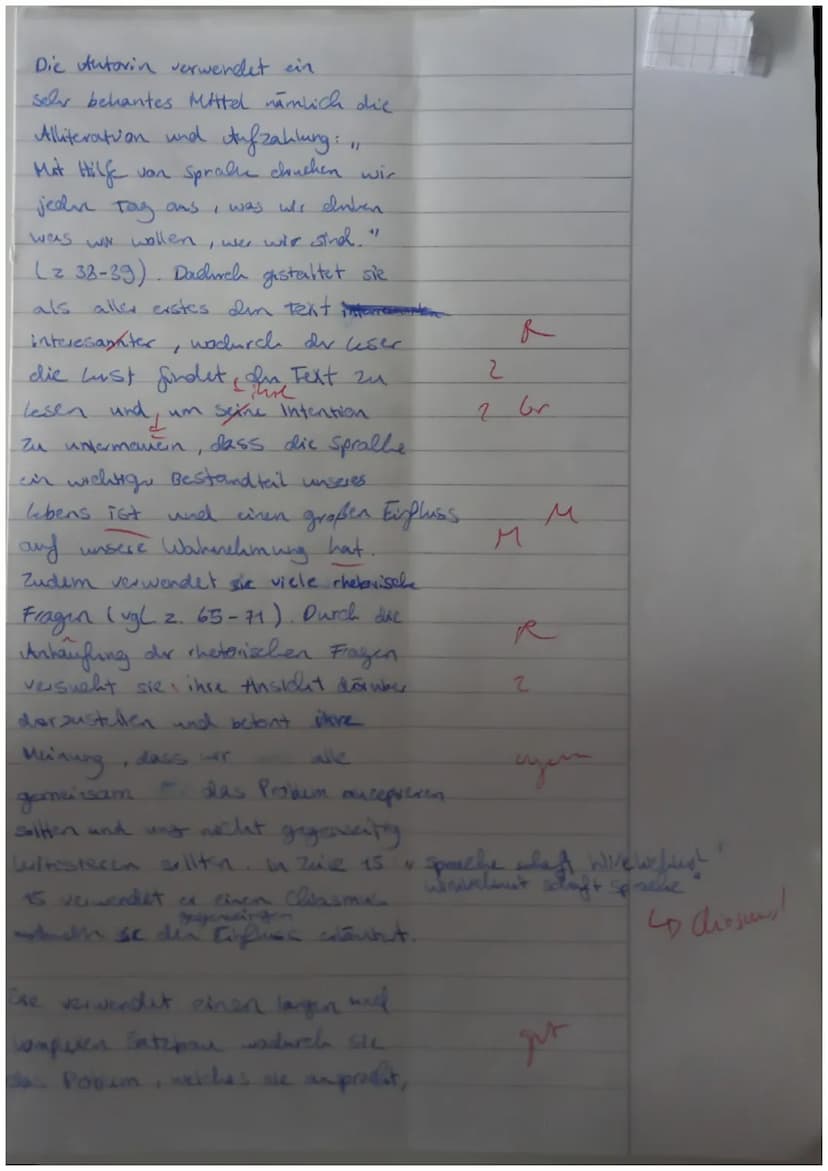 Die Autorin verwendet ein
sehr bekantes Mittel nämlich die
Alliteration und Aufzahlung: „
Mit Hilfe von Sprache drucken wir
jeden Tag aus, was wir denken
was wir wollen, wer wir sind."
(z 38-39). Dadurch gestaltet sie
als aller erstes den Text
interesannter, wodurch der Leser R
die Lust findet, den Text zu 2
ihre
lesen und, um seine Intention ? Gr
zu untermauen, dass die Sprache
ein wichtige Bestandteil unseres
lebens ist und einen großen Einfluss M
auf unsere Wahrnehmung hat. M
Zudem verwendet sie viele rhetorische
Fragen (vgl z. 65-71). Durch die
Anhäufung der rhetorischen Fragen R
versucht sie, ihre Ansicht darüber 2
darzustellen und betont ihre
Meinung, dass wir alle
gemeinsam das Problem
sollten und uns nicht gegenseitig
sollten. In Zeile 15 „ Sprache schaft Wirklichkeit
Wirklichkeit schaft Sprache"
15 verwendet er einen Chiasmus
gegenseitigen
sie den Einfluss erläutert.
↳ Chiasmus!
Sie verwendet einen langen und
komplexen Satzbau wodurch sie gut
das Problem, welches sie anspricht,